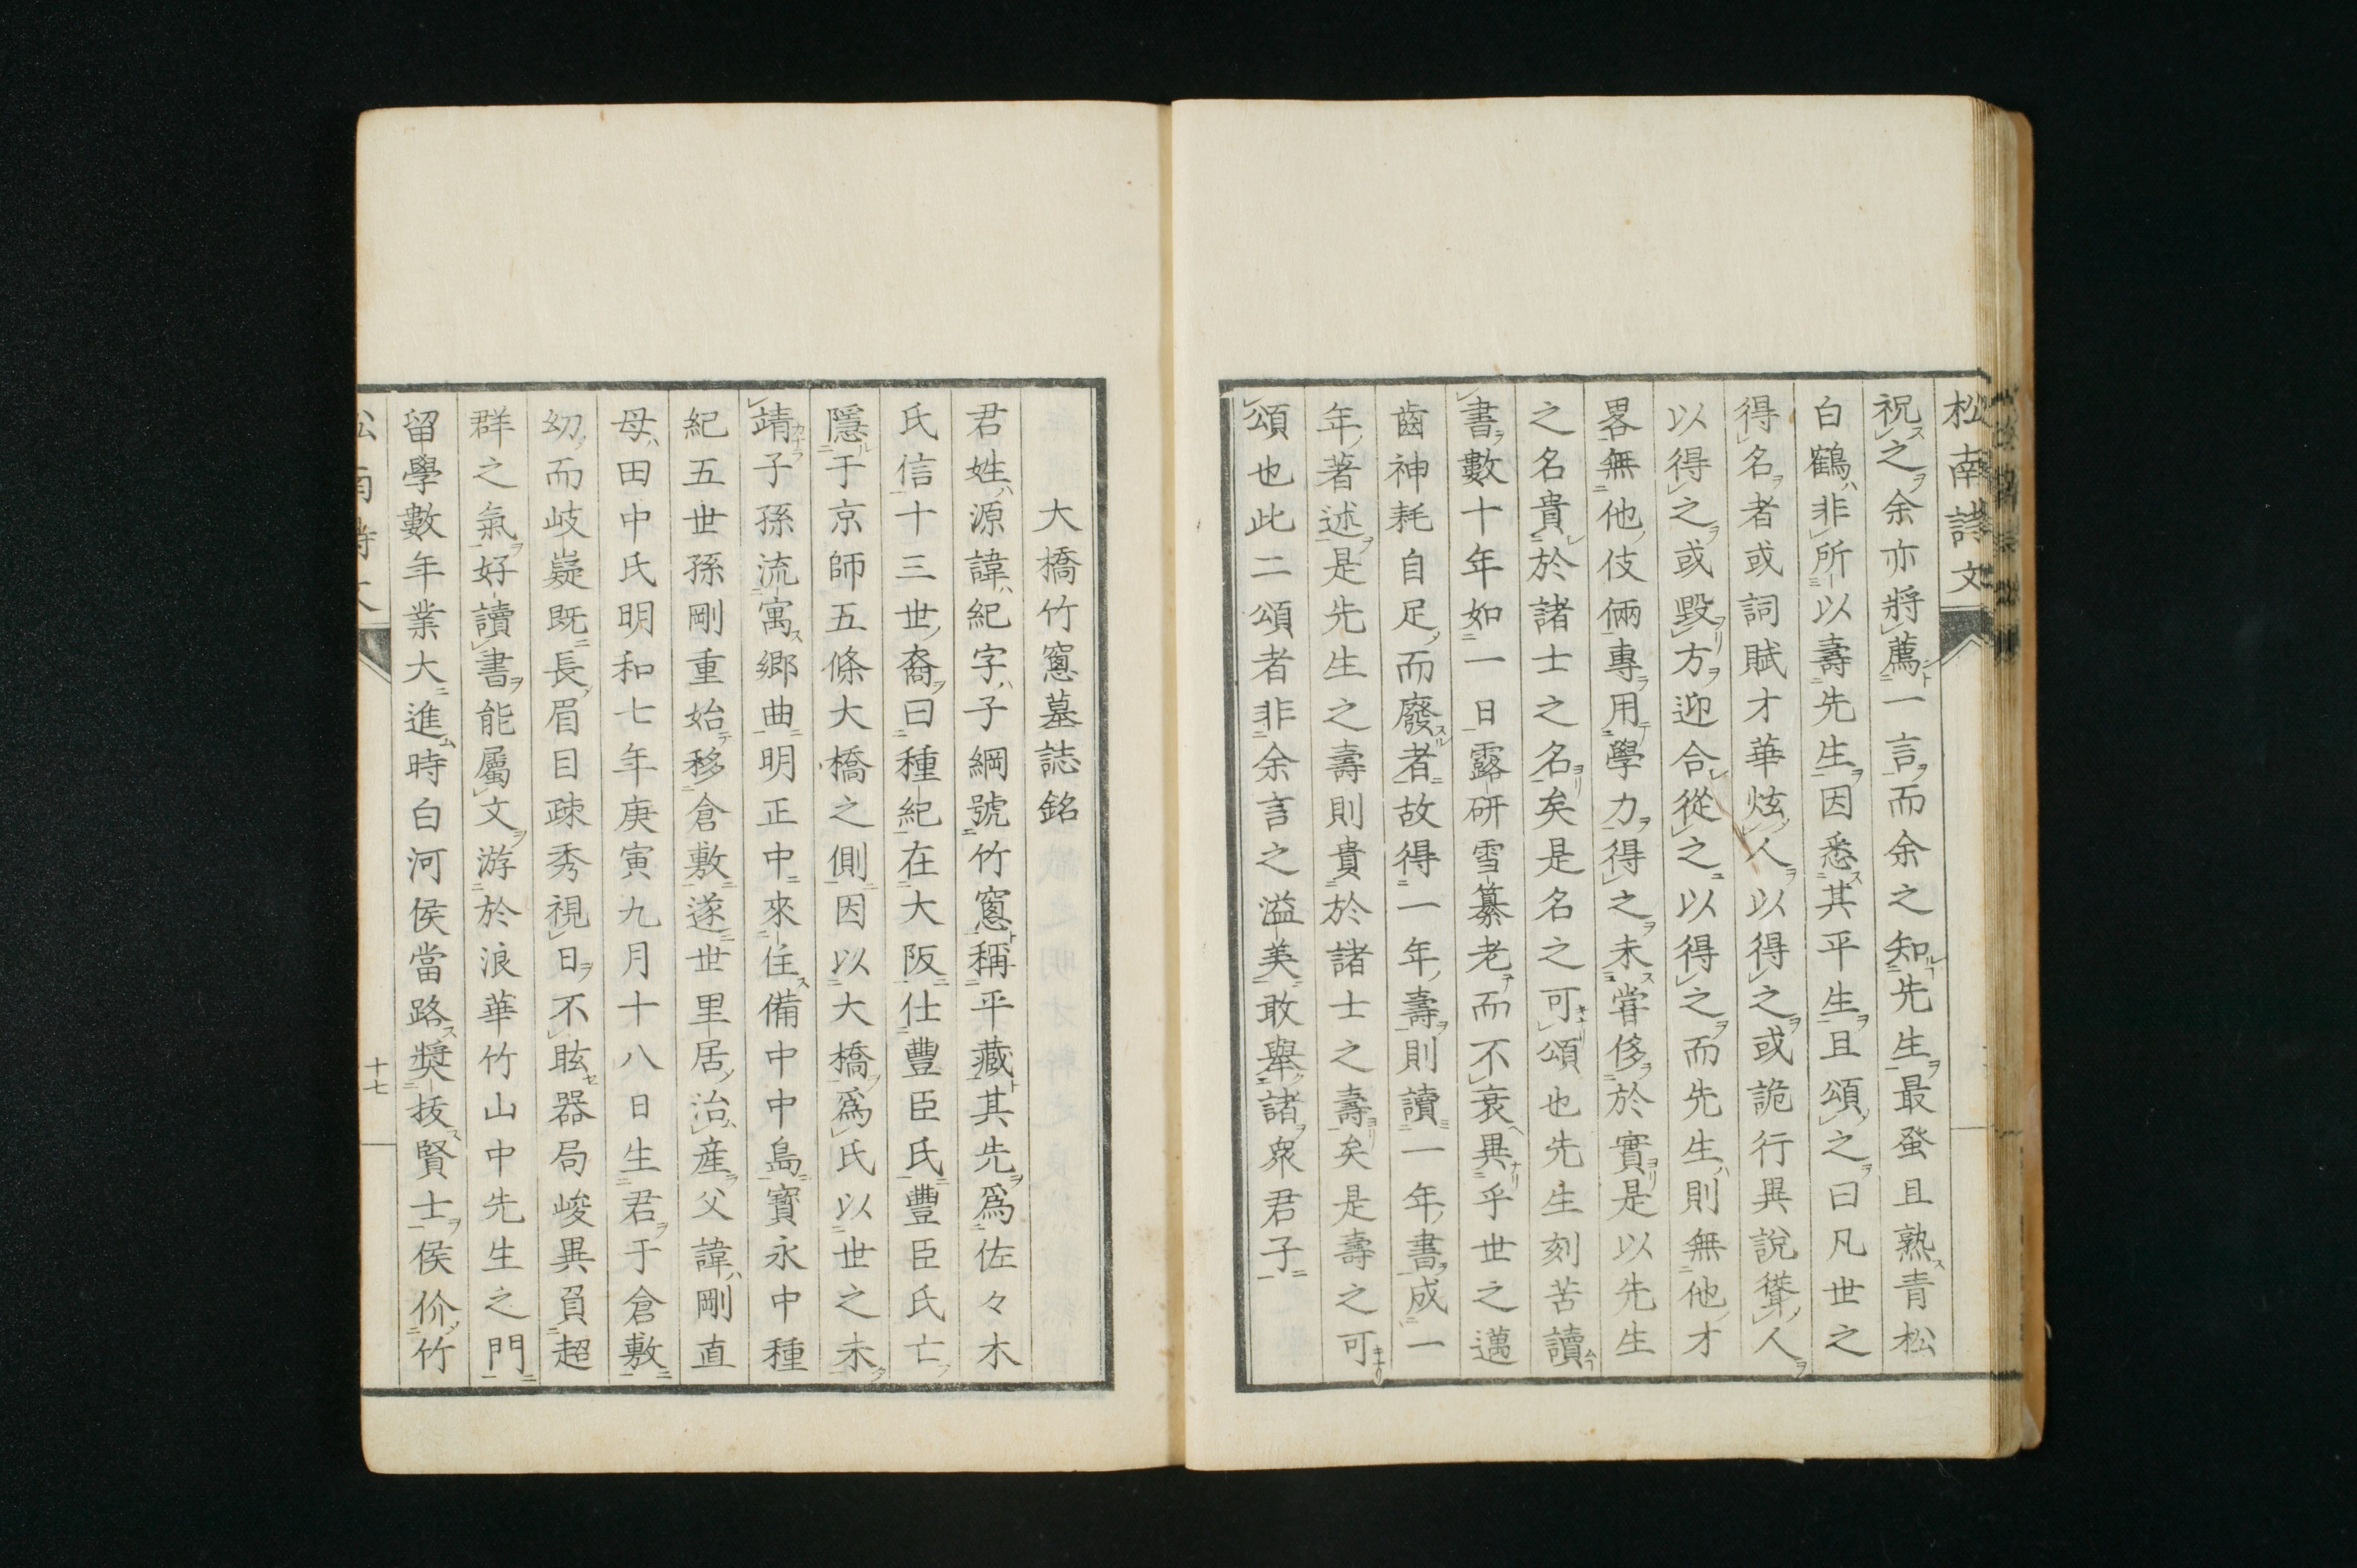 松南詩文
祝之余亦將薦一言而余之知先生最蚤且熟青松
白鶴非所以壽先生因悉其平生且頌之曰凡世之
得名者或詞賦才華炫人以得之或詭行異說聳人
以得之或毀方迎合從之以得之而先生則無他才
畧無他伎倆專用學力得之未甞侈於實是以先生
之名貴於諸士之名矣是名之可頌也先生刻苦讀
書數十年如一日露研雪纂老而不衰異乎世之邁
齒神耗自足而廢者故得一年壽則讀一年書成一
年著述是先生之壽則貴於諸士之壽矣是壽之可
頌也此二頌者非余言之溢美敢擧諸衆君子
大橋竹窻墓誌銘
君姓源諱紀字子綱號竹窻稱平藏其先爲佐々木
氏信十三世裔曰種紀在大阪仕豐臣氏豐臣氏亡
隱于京師五條大橋之側因以大橋爲氏以世之未
靖子孫流寓鄕曲明正中來住備中中島寶永中種
紀五世孫剛重始移倉敷遂世里居治產父諱剛直
母田中氏明和七年庚寅九月十八日生君于倉敷
幼而岐嶷既長眉目疎秀視日不眩器局峻異負超
群之氣好讀書能屬文游於浪華竹山中先生之門
留學數年業大進時白河侯當路奬拔賢士侯价竹
十七